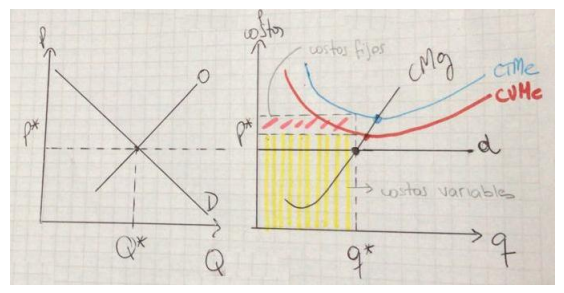 P
O
P*
D
Q*
Q
costos
costos fijos
CMg
CTMe
CVMe
P*
d
costos variables
q*
q